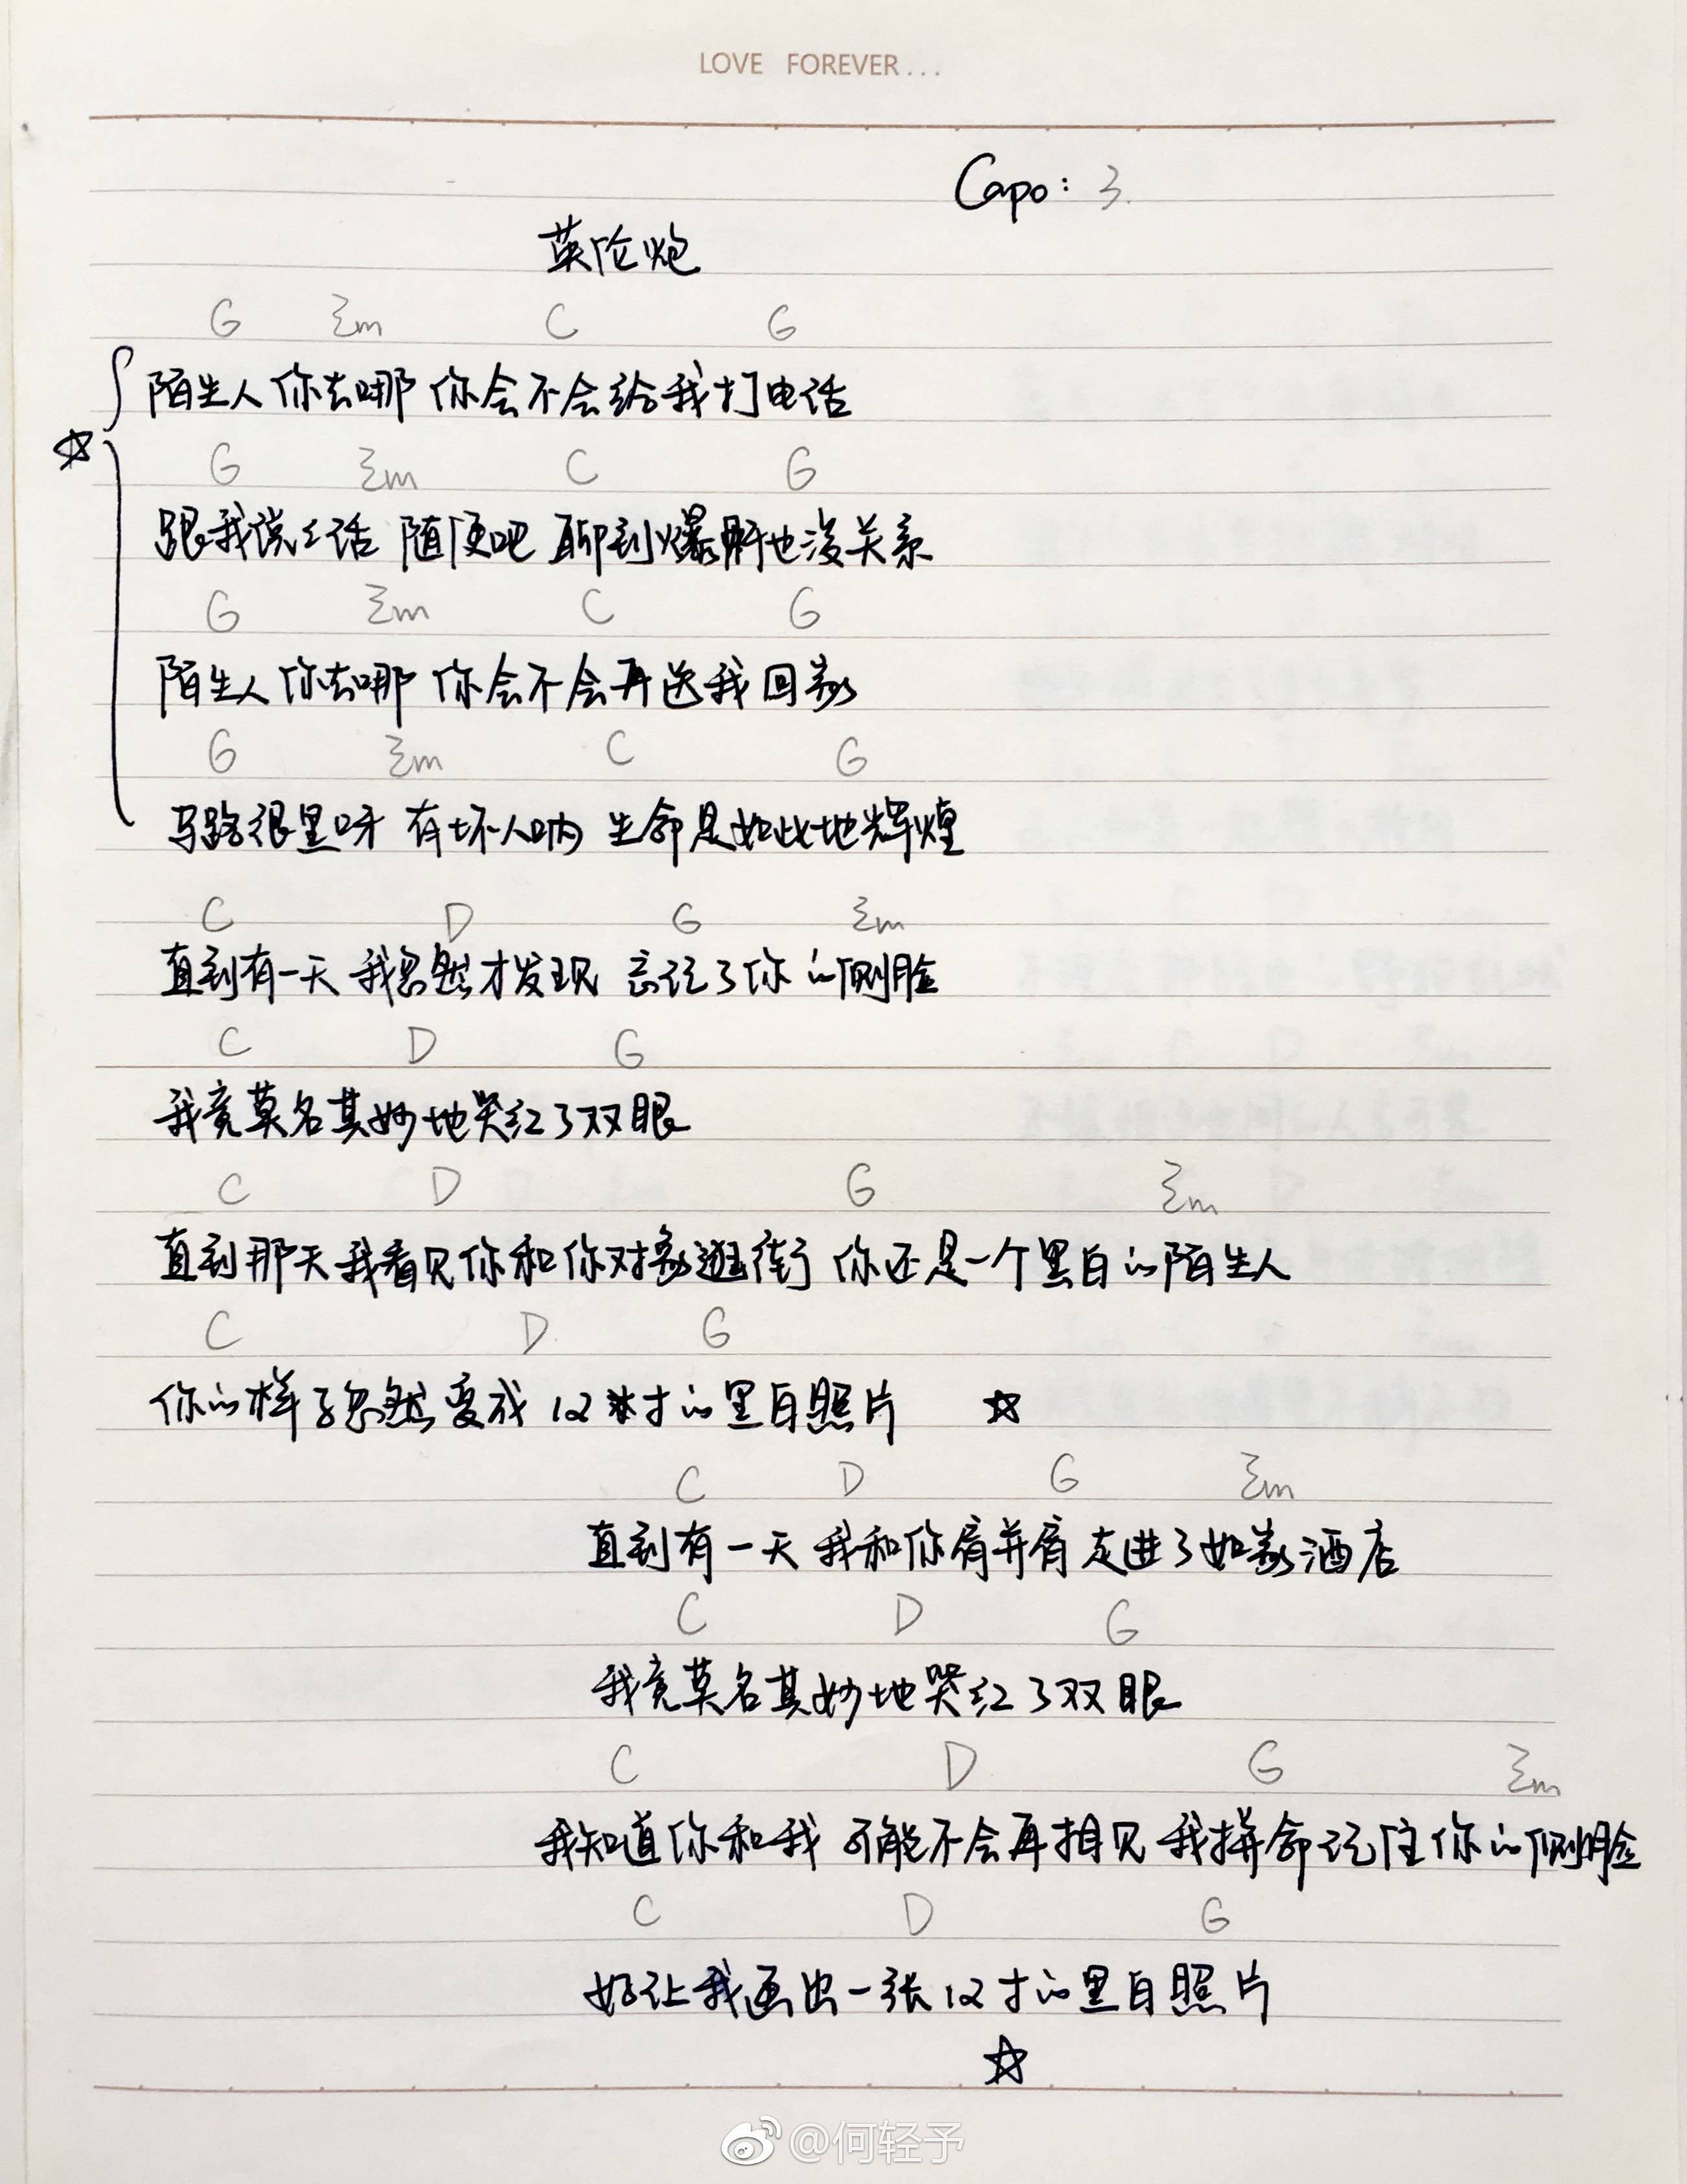 LOVE FOREVER...
Capo: 3.
英伦炮
G Em C G
陌生人你去哪 你会不会给我打电话
G Em C G
跟我说说话 随便吧 聊到爆肝也没关系
G Em C G
陌生人 你去哪 你会不会再送我回家
G Em C G
马路很黑呀 有坏人呐 生命是如此地辉煌
C D G Em
直到有一天 我忽然才发现 忘记了你的侧脸
C D G
我竟莫名其妙地哭红了双眼
C D G Em
直到那天我看见你和你对象逛街 你还是一个黑白的陌生人
C D G
你的样子忽然变成 12寸的黑白照片 ☆
C D G Em
直到有一天 我和你肩并肩 走进了如家酒店
C D G
我竟莫名其妙地哭红了双眼
C D G Em
我知道你和我 可能不会再相见 我拼命记住你的侧脸
C D G
好让我画出一张12寸的黑白照片
☆
@何轻予